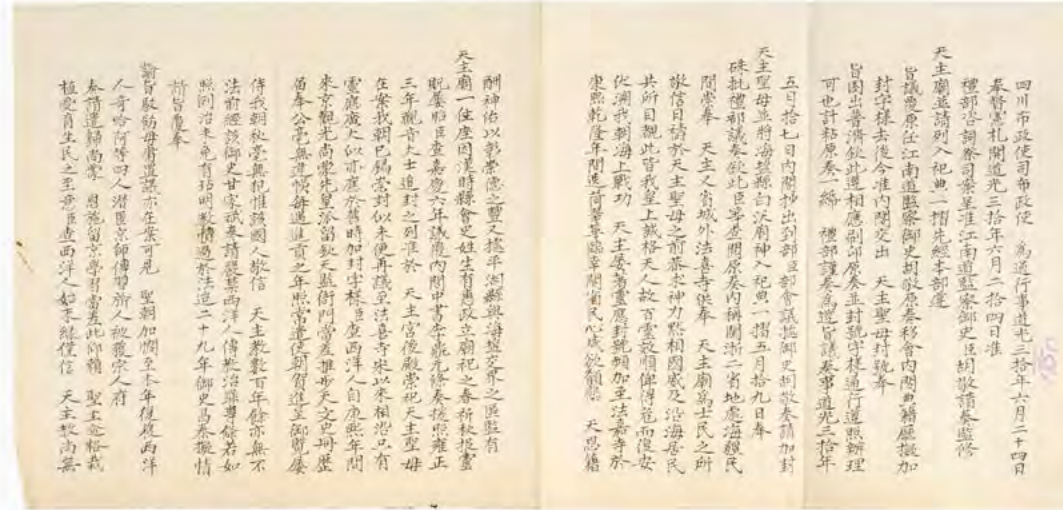 四川布政使司布政使 為遵行事道光三拾年六月二十四日
奉督憲札開道光三拾年六月二拾四日准
禮部咨祠祭司案呈准江南道監察御史臣胡敬請奏監修
天主廟並請列入祀典一摺先經本部遵
旨議覆原任江南道監察御史胡敬原奏移會內閣典籍廳撤加
封字樣去後今准內閣交出 天主聖母封號奉
旨圈出普濟欽此遵相應刷印原奏並封號字樣通行遵照辦理
可也計粘原奏一紙 禮部謹奏為遵旨議奏事道光三拾年
五月拾七日內閣抄出到部臣部會議據御史胡敬奏請加封
天主聖母並將海鹽縣白沃廟神入祀典一摺五月拾九日奉
硃批禮部議奏欽此臣等查閱原奏內稱閩浙二省地處海疆民
間崇奉 天主又省城外法喜寺供奉 天主廟為士民之所
敬信日禱於天主聖母之前恭求神力默相國威及沿海居民
共所目覩此皆我皇上誠格天人故百靈效順俾得危而復安
伏溯我朝海上戰功 天主屢著靈應封號頻加至法喜寺於
康熙乾隆年間迭荷 臨幸閤省民心咸欲籲懇 天恩籍
酬神佑以彰崇德之豐又據平湖縣與海鹽交界之區監有
天主廟一住座因漢時縣會史姓生有惠政立廟祀之春祈秋報靈
貺屢昭臣查嘉慶六年議覆內閣中書李鼎元條奏援照雍正
三年觀音大士追封之列准於 天主宮後殿崇祀天主聖母
在案我朝已錫崇封似未便再議至法喜寺宋以來相沿只有
靈感廣大似亦應於舊時加封字樣臣查西洋人自康熙年間
來京觀光尚蒙先皇派留欽天監衙門當差推步天文史冊歷
留奉公毫無違悞每遇進貢之年照常遣使朝賀進呈御覽屢
侍我朝秋毫無犯惟該國人敬信 天主教數百年餘亦無不
法前經該御史甘家斌奏請嚴禁西洋人傳教治罪專條若如
照例治未免有玷明 於法道二十九年御史馬奏擬情
請旨覆奉
諭旨駁飭毋庸置議亦在案可見 聖朝加憫至本年復獲西洋
人 等四人潛匿京師傳習旂人被獲宗人府
奏請遣歸尚蒙 恩施留京學習當差此仰賴 聖主意格栽
植愛育生民之至意臣查西洋人始來緣僅信 天主教尚無